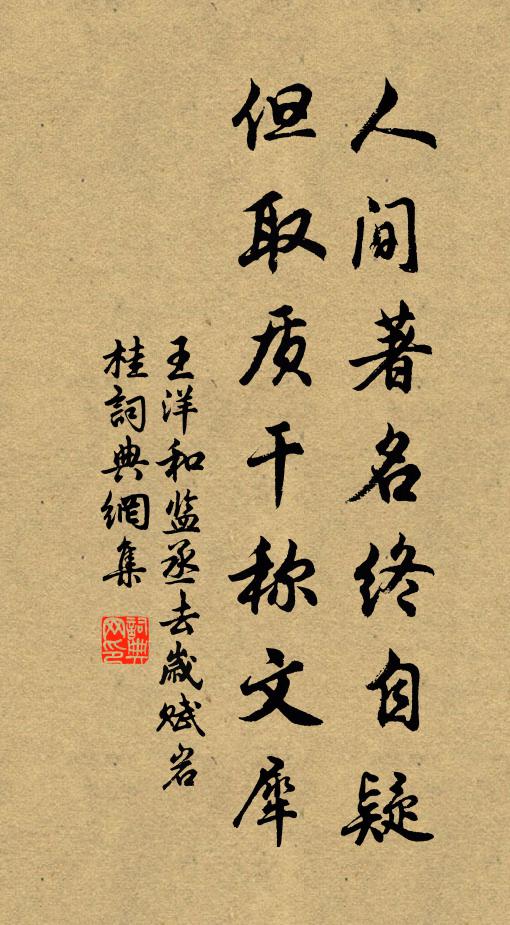 人间著名终自疑
但取质干称文犀
王洋和监丞去歲赋岩
桂詞典網集
詞典网印